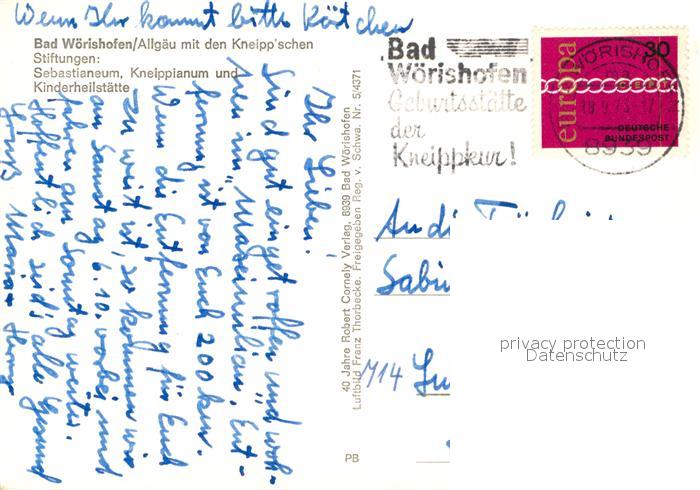 Wenn Ihr kommt bitte Kärtchen
Bad Wörishofen/Allgäu mit den Kneipp'schen
Stiftungen:
Sebastianeum, Kneippianum und
Kinderheilstätte
Ihr Lieben!
Sind gut eingetroffen und woh-
nen im "Maximilian". Ent-
fernung ist von Euch 200 km.
Wenn die Entfernung für Euch
zu weit ist, so kommen wir
am Samstag 6.10. vorbei und
fahren am Sonntag weiter.
Hoffentlich seid's alle Gesund
Gruß Maria +
40 Jahre Robert Cornely Verlag, 8939 Bad Wörishofen
Luftbild Franz Thorbecke. Freigegeben Reg. v. Schwa. Nr. 5/4371
PB
Bad
Wörishofen
Geburtsstätte
der
Kneippkur!
WÖRISHOF
8939
europa
30
DEUTSCHE
BUNDESPOST
An di
Sabi
714
privacy protection
Datenschutz